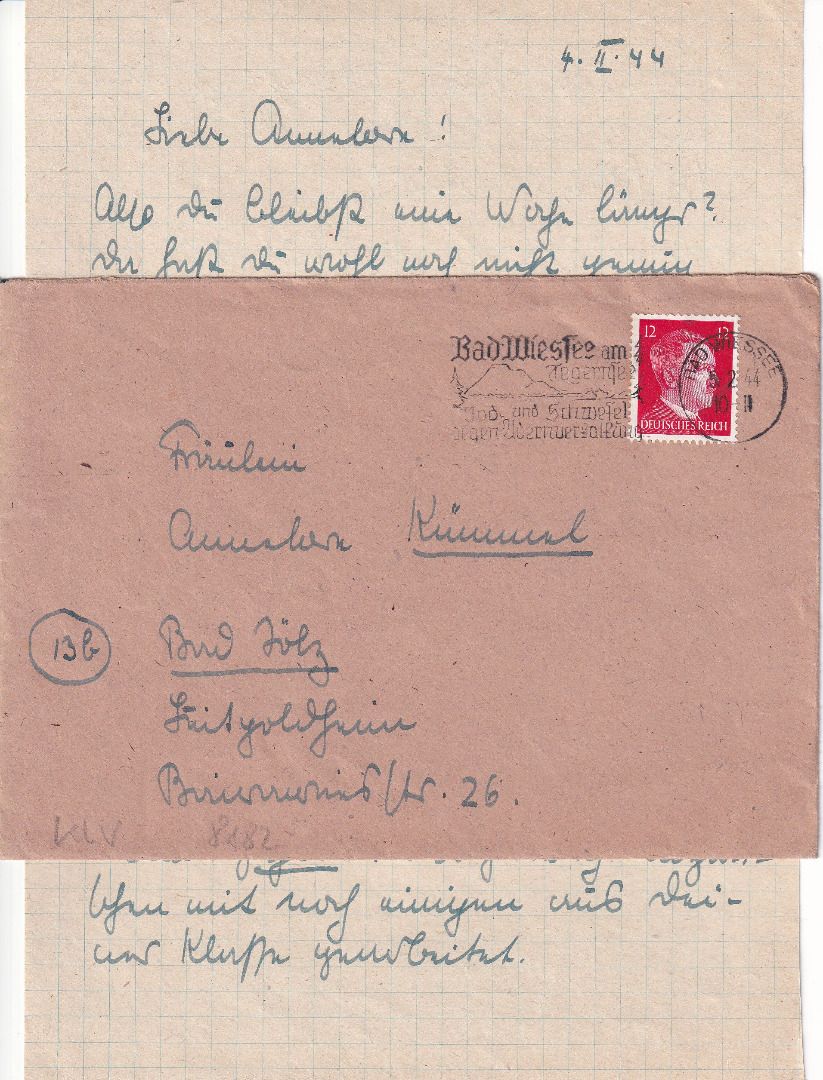 4. II. 44
Liebe Annelore!
Also du bleibst eine Woche länger?
Da hast du wohl noch nicht genug
Bad Wiessee am
Tegernsee
Jod- und Schwefel
gegen Aderverkalkung
12 12
DEUTSCHES REICH
BAD WIESSEE
5.2.44
10-11
Fräulein
Annelore Kümmel
13b
Bad Tölz
Luitpoldheim
str. 26.
KLV 8182
chen mit noch einigen aus dei-
ner Klasse gearbeitet.